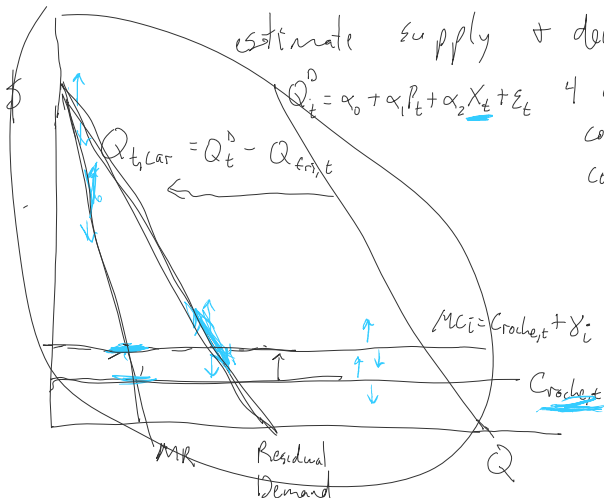 estimate supply + de
$
Q_t^D = α_0 + α_1 P_t + α_2 X_t + ε_t 4
co
co
Q_{t,car} = Q_t^D - Q_{fri,t}
MC_i = C_{roche,t} + γ_i
C_{roche,t}
MR
Residual
Demand
Q